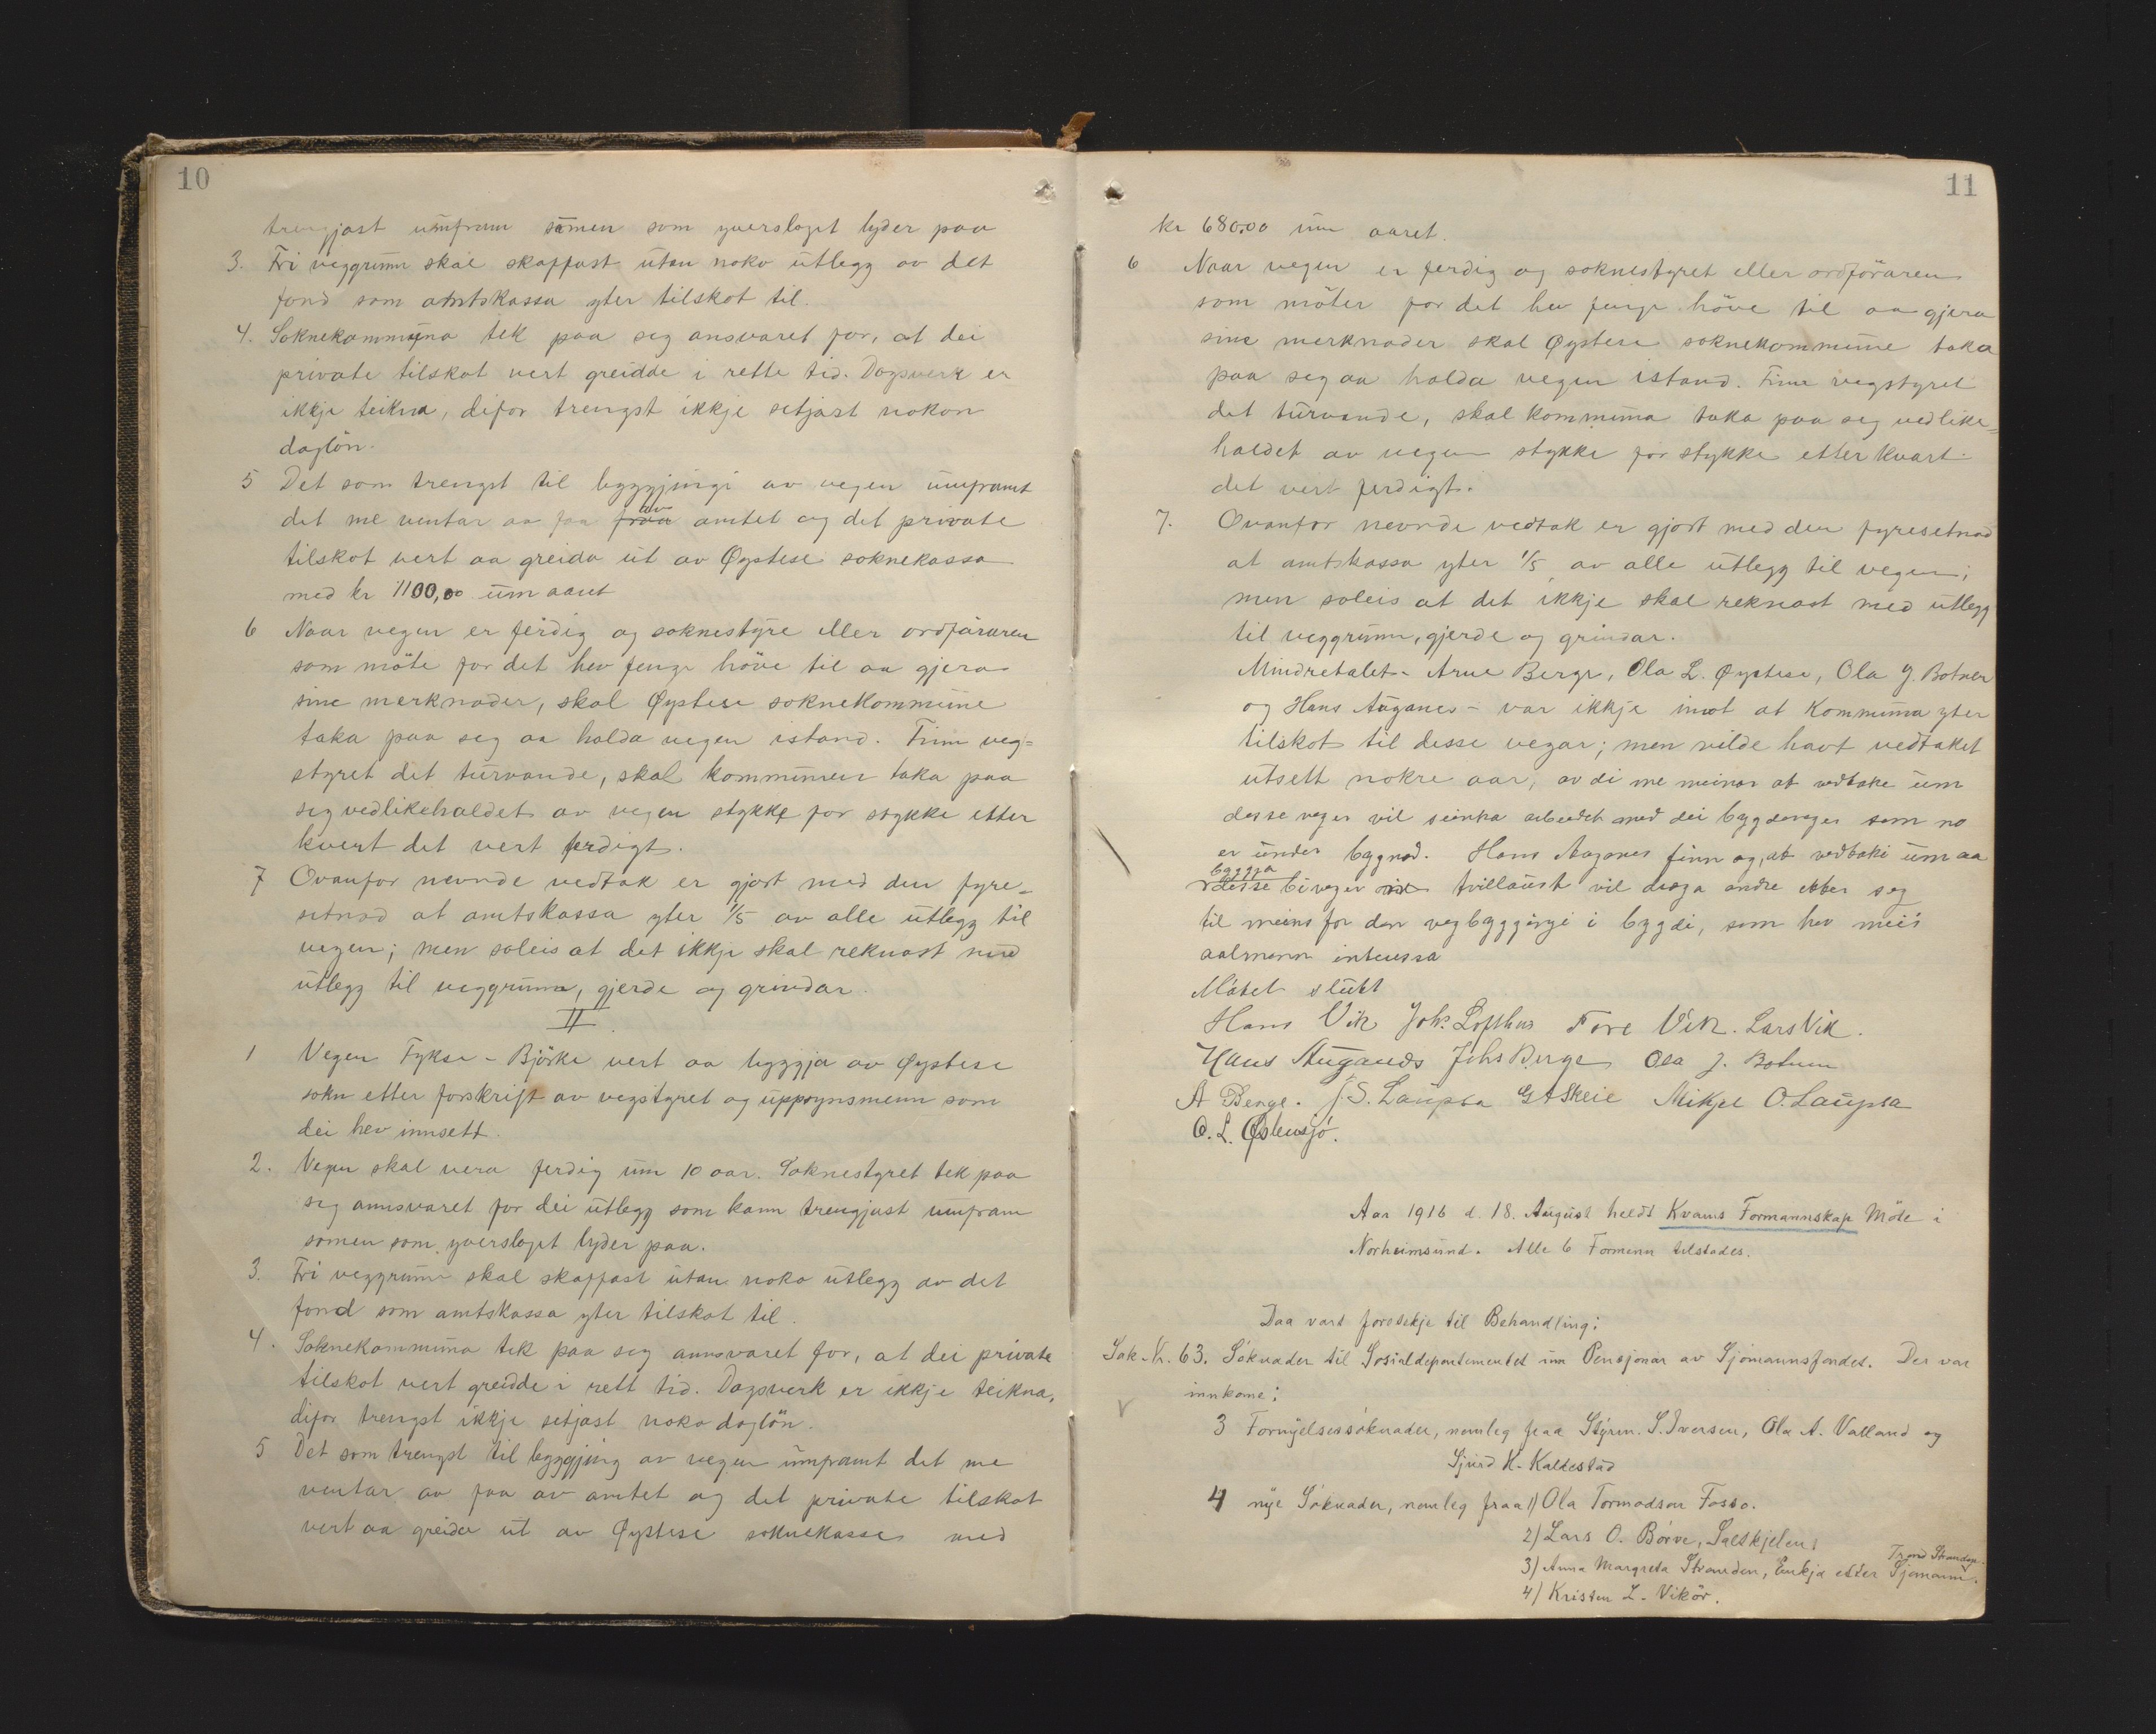 10
trengjast umfram sumen som yverslaget lyder paa
3. Fri veggrunn skal skaffast utan noko utlegg av det
fond som amtskassa yter tilskot til.
4. Soknekommuna tek paa seg ansvaret for, at dei
private tilskot vert greidde i rette tid. Dagsverk er
ikkje teikna, difor trengst ikkje setjast nokon
daglön.
5 Det som trengst til byggjingi av vegen umframt
det me ventar aa faa fraa av amtet og det private
tilskot vert aa greida ut av Øystese soknekassa
med kr 1100,00 um aaret
6 Naar vegen er ferdig og soknestyre eller ordföraren
som möte for det hev fenge höve til aa gjera
sine merknader, skal Øystese soknekommune
taka paa seg aa halda vegen istand. Finn veg=
styret det turvande, skal kommunen taka paa
seg vedlikehaldet av vegen stykke for stykke etter
kvert det vert ferdigt.
7 Ovanfor nevnde vedtak er gjort med den fyre-
setnad at amtskassa yter 1/5 av alle utlegg til
vegen; men soleis at det ikkje skal reknast med
utlegg til veggrunn, gjerde og grindar.
II.
1 Vegen Fykse - Björke vert aa byggja av Øystese
sokn etter forskrift av vegstyret og uppsynsmenn som
dei hev innsett.
2. Vegen skal vera ferdig um 10 aar. Soknestyret tek paa
seg annsvaret for dei utlegg som kann trengjast umfram
somen som yverslaget lyder paa.
3. Fri veggrunn skal skaffast utan noko utlegg av det
fond som amtskassa yter tilskot til.
4. Soknekommuna tek paa seg annsvaret for, at dei private
tilskot vert greidde i rett tid. Dagsverk er ikkje teikna,
difor trengst ikkje setjast noko daglön.
5 Det som trengst til byggjing av vegen umframt det me
ventar aa faa av amtet og det private tilskot
vert aa greida ut av Øystese soknekasse med
11
kr 680,00 um aaret.
6 Naar vegen er ferdig og soknestyret eller ordföraren
som möter for det hev fenge höve til aa gjera
sine merknader skal Øystese soknekommune taka
paa seg aa halda vegen istand. Finn vegstyret
det turvande, skal kommuna taka paa seg vedlike=
haldet av vegen stykke for stykke etter kvart
det vert ferdigt.
7. Ovanfor nevnde vedtak er gjort med den fyresetnad
at amtskassa yter 1/5 av alle utlegg til vegen;
men soleis at det ikkje skal reknast med utlegg
til veggrunn, gjerde og grindar.
Mindretalet - Arne Berge, Ola L. Øystese, Ola J. Botnen
og Hans Auganes - var ikkje imot at kommuna yter
tilskot til desse vegar; men vilde havt vedtaket
utsett nokre aar, av di me meinar at vedtake um
desse veger vil seinka arbeidet med dei bygdeveger som no
er under bygnad. Hans Auganes finn og, at vedtaki um aa
byggja
desse biveger tvillaust vil draga andre etter seg
til meins for den vegbyggingi i bygdi, som hev meir
aalmenn interessa
Mötet slutt
Hans Vik Johs Lofthus Tore Vik. Lars Vik.
Hans Auganes Johs Berge Ola J. Botnen
A Berge. J. S. Laupsa G A Skeie Mikjel O. Laupsa
O. L. Østensjó.
Aar 1916 d. 18. August heldt Kvams Formannskap Möte i
Norheimsund. Alle 6 Formenn tilstades.
Daa vart foretekje til Behandling:
Sak Nr. 63. Söknader til Sosialdepartementet um Pensjonar av Sjömannsfondet. Der var
innkome:
3 Fornyelsessöknader, nemleg fraa Styrm. S. Iversen, Ola A. Valland og
Sjurd K. Kaldestad
4 nye Söknader, nemleg fraa 1) Ola Tormodson Fosso.
2) Lars O. Börve, Saltkjelen,
3) Anna Margreta Stranden, Enkja etter Sjömann Trond Stranden.
4) Kristen L. Vikör.